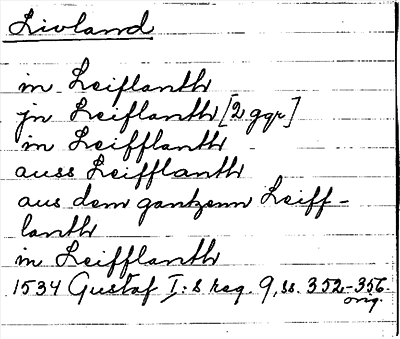 Livland
in Leiflanth
jn Leiflanth [2 ggr]
in Leifflanth
auss Leifflanth
aus dem gantzenn Leiff-
lanth
in Leifflanth
1534 Gustaf I:s reg. 9, ss. 352-356.
orig.